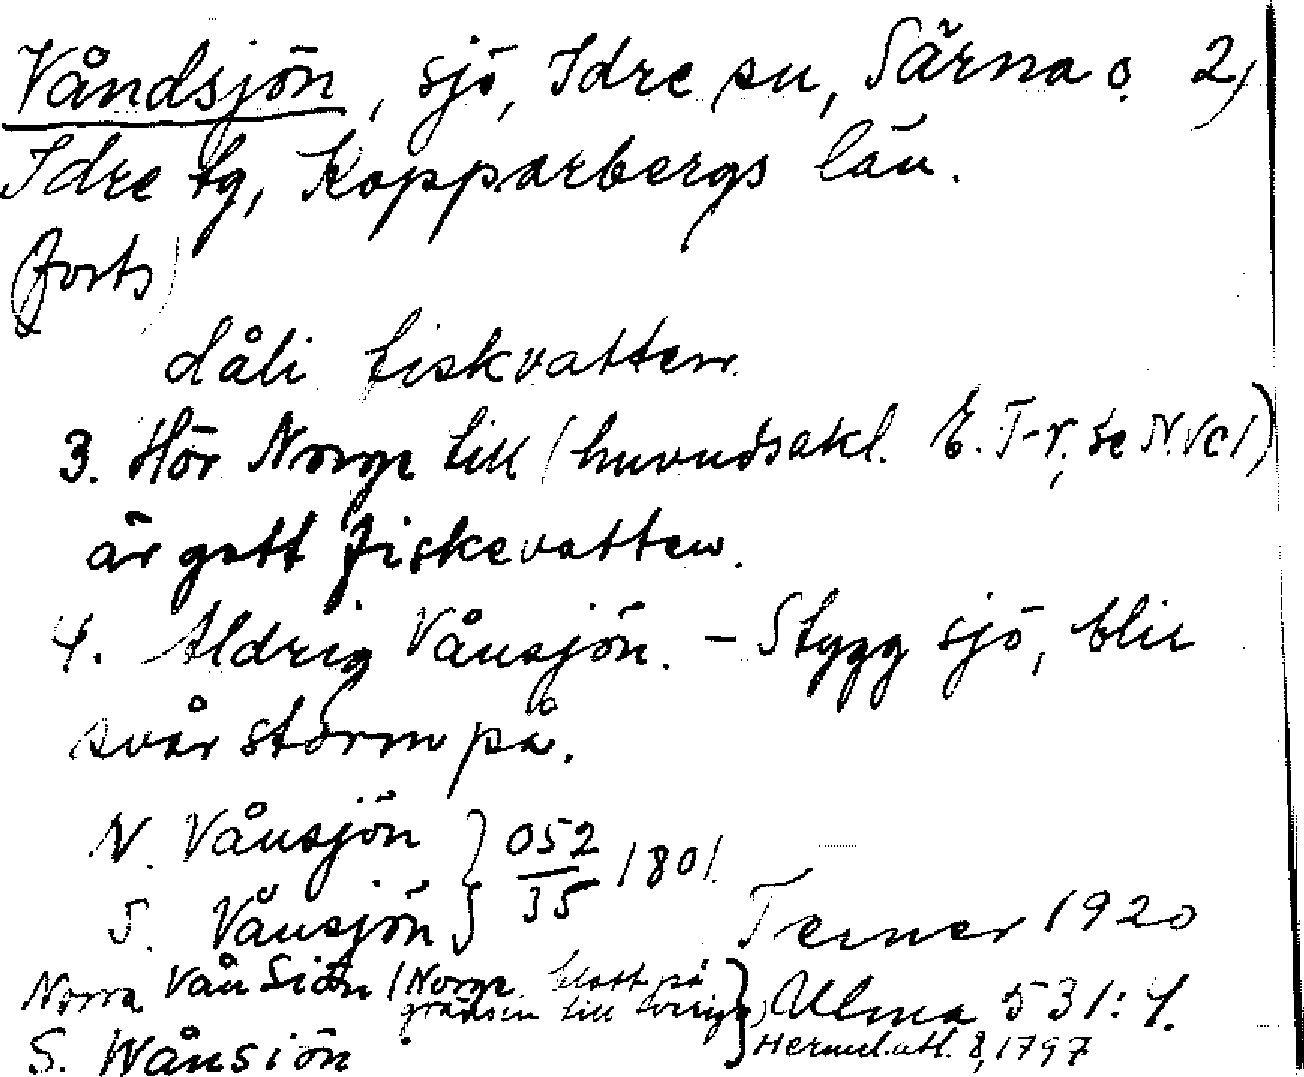 Våndsjön, sjö, Idre sn, Särna o. 2)
Idre tg, Kopparbergs län.
(forts)
dåli fiskvatten.
3. Hör Norge till (huvudsakl. E. T-r, se N. Vel)
är gott fiskevatten.
4. Aldrig Vånsjön. – Stygg sjö, blir
svår storm på.
N. Vånsjön } 052/35 1801.
S. Vånsjön
Terner 1920
Norra Vån Siön (Norge. blott på
gränsen till Sverige), Ulma 531:4.
S. Wånsiön } Hermel. atl. 8, 1797